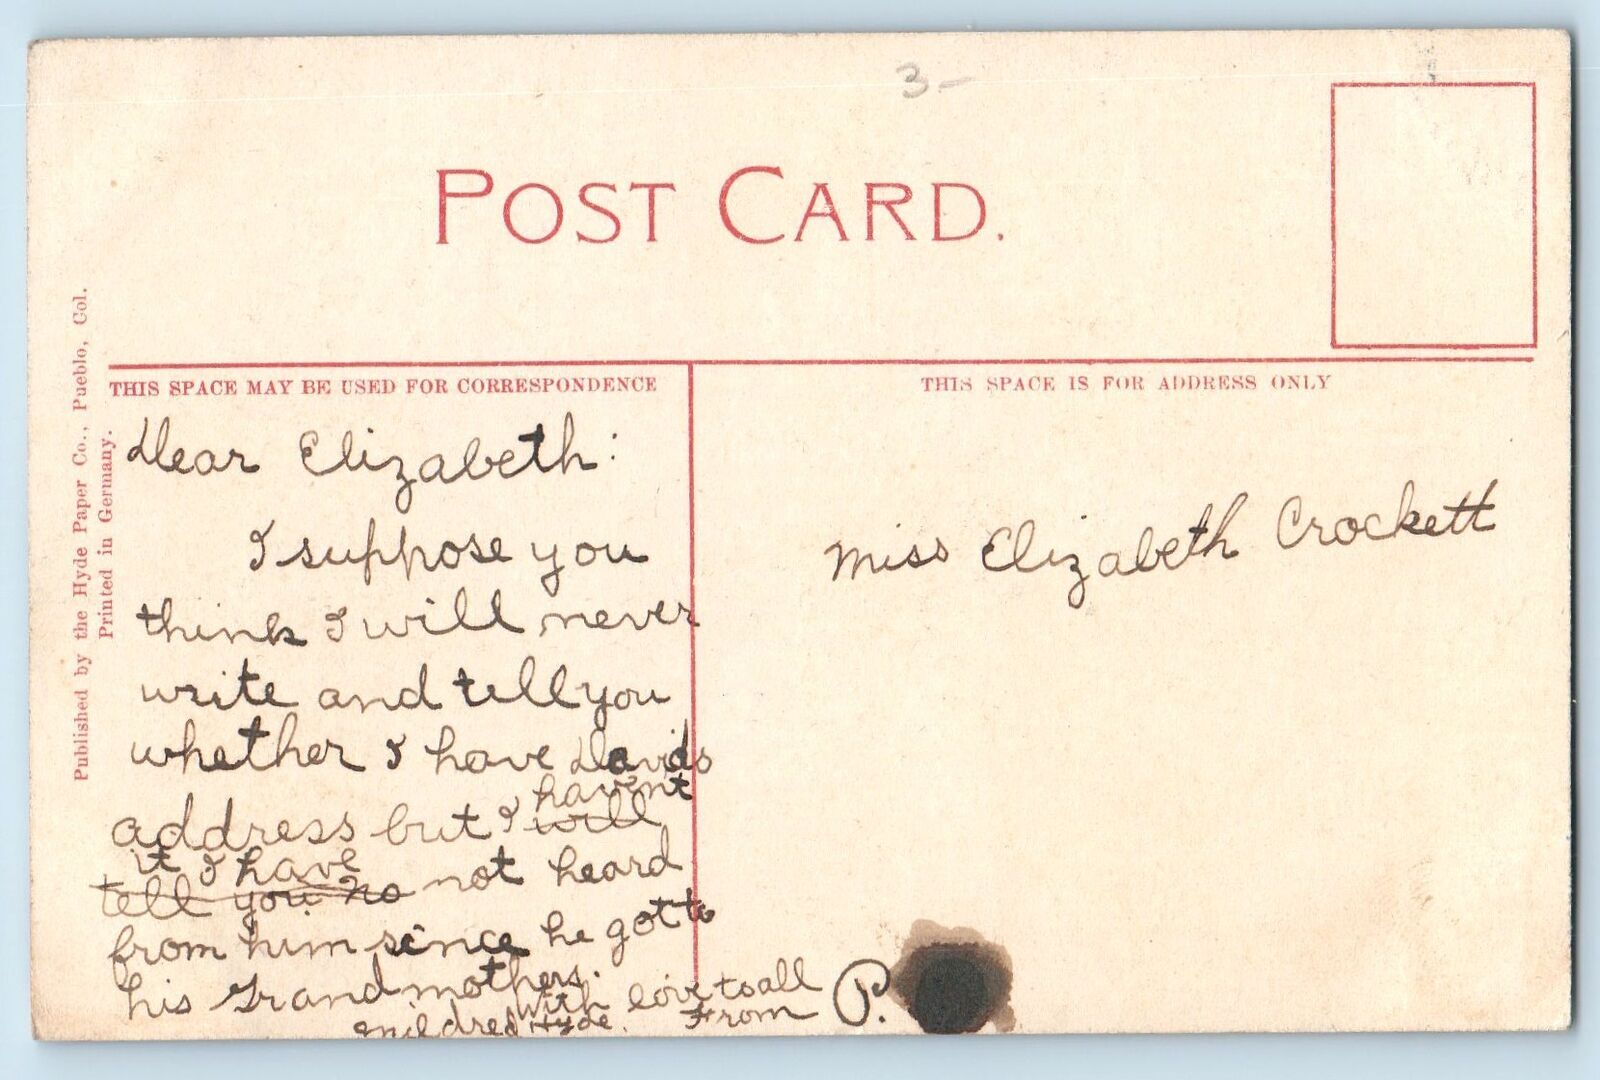 3-
POST CARD.
Published by the Hyde Paper Co., Pueblo, Col.
Printed in Germany.
THIS SPACE MAY BE USED FOR CORRESPONDENCE
Dear Elizabeth:
I suppose you
think I will never
write and tell you
whether I have Davids
havent
address but I will
it I have
tell you no not heard
from him since he got to
his Grandmothers.
With love to all
Mildred Hyde. From P.
THIS SPACE IS FOR ADDRESS ONLY
Miss Elizabeth Crockett